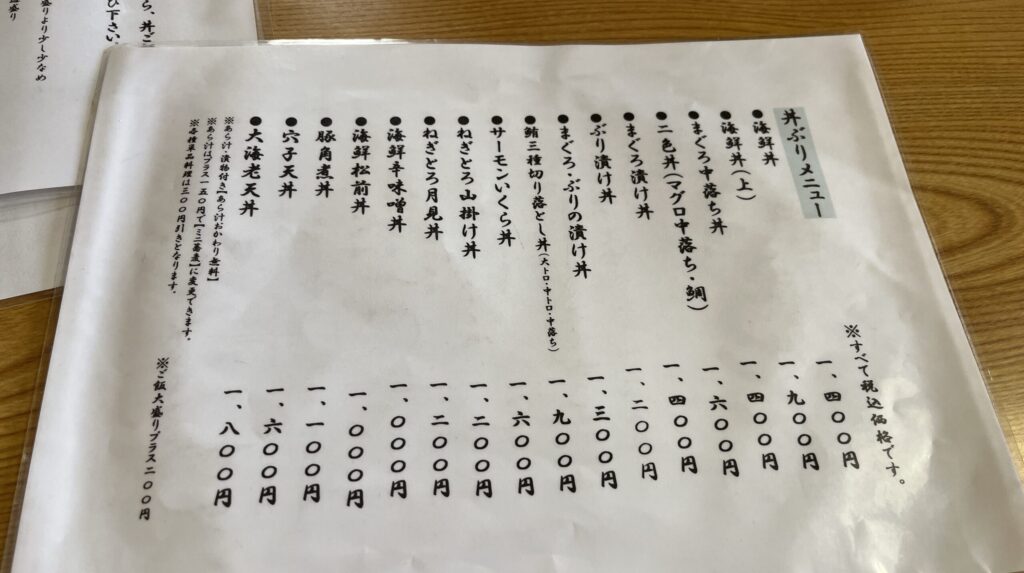 丼ぶりメニュー
※すべて税込価格です。
●海鮮丼 一、四〇〇円
●海鮮丼(上) 一、九〇〇円
●まぐろ中落ち丼 一、四〇〇円
●二色丼(マグロ中落ち・鯛) 一、六〇〇円
●まぐろ漬け丼 一、四〇〇円
●ぶり漬け丼 一、二〇〇円
●まぐろ・ぶりの漬け丼 一、三〇〇円
●鮪三種切り落とし丼(大トロ・中トロ・中落ち) 一、九〇〇円
●サーモンいくら丼 一、六〇〇円
●ねぎとろ山掛け丼 一、二〇〇円
●ねぎとろ月見丼 一、二〇〇円
●海鮮辛味噌丼 一、〇〇〇円
●海鮮松前丼 一、〇〇〇円
●豚角煮丼 一、一〇〇円
●穴子天丼 一、六〇〇円
●大海老天丼 一、八〇〇円
※あら汁・漬物付き【あら汁おかわり無料】
※あら汁はプラス一五〇円で【ミニ蕎麦】に変更できます。
※各種単品料理は三〇〇円引きとなります。
※ご飯大盛りプラス二〇〇円
ら、丼ご
び下さい。
盛りより少し少なめ
盛り